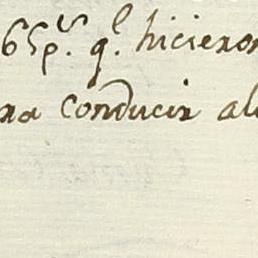 65 p.s q.l hicieron
ra conducir al